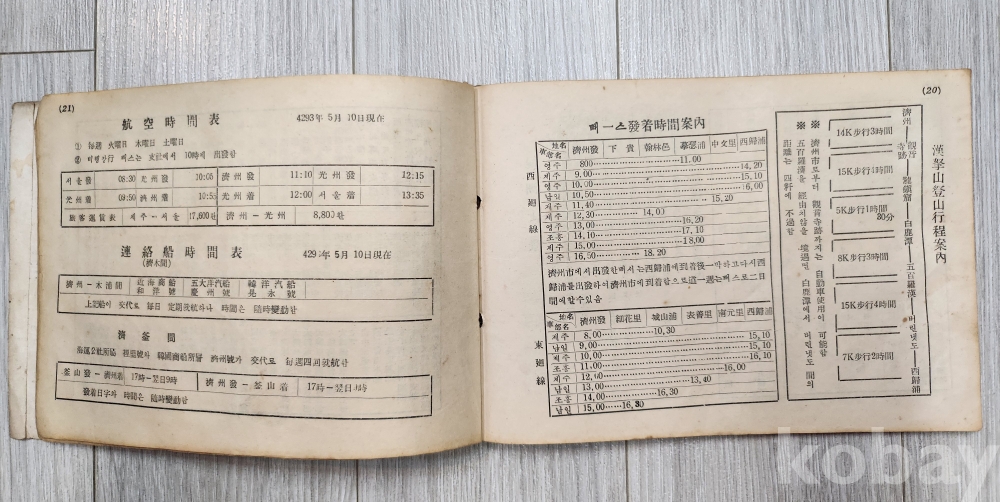 (21)
航空時間表
4293年 5月 10日現在
① 毎週 火曜日 木曜日 土曜日
② 비행장行 뻐스는 支社에서 10時에 出發함
서울發 08:30 光州發 10:05 濟州發 11:10 光州發 12:15
光州着 09:50 濟州着 10:55 光州着 12:00 서울着 13:35
旅客運賃表 제주-서울 17,600환 濟州-光州 8,800환
連絡船時間表
(濟木間)
4293年 5月 10日現在
濟州-木浦間 近海商船 五大洋汽船 韓洋汽船
和洋號 慶州號 是永號
上記船이 交代로 毎日 定期就航하나 時間은 隨時變動함
濟釜間
毎週四回就航함
釜山發-濟州着 17時-翌日9時 濟州發-釜山着 17時-翌日9時
發着日字와 時間은 隨時變動함
(20)
뻐-스發着時間案內
西廻線
地名 濟州發 下貴 翰林邑 摹瑟浦 中文里 西歸浦
영주 8.00 11.00
제주 9.00 14,20
영주 10.00 15,10
남일 10,50 16,00
제주 11,40 15,20
제주 12,30 14,00
영주 13,00 16,20
조흥 14,10 17,10
제주 15,00 18,00
영주 16,50 18,20
濟州市에서 出發한 뻐서는 西歸浦에 到着後 一박하고 다시 西
歸浦를 出發하여 濟州市에 到着함으로 道一週는 뻐스로 二日
間에 할수있음
東廻線
地名 濟州發 細花里 城山浦 表善里 南元里 西歸浦
제주 8,00 10,30
남일 9,00 15,10
제주 10,00 16,10
조흥 11,00 16,00
제주 12,00 16,10
남일 13,00 13,40
조흥 14,00
남일 15,00 16,30
漢拏山登山行程案內
濟州 觀音寺跡 龍鎭窟 白鹿潭 五百羅漢 西歸浦
14K步行3時間
15K步行4時間
5K步行1時間30分
8K步行3時間
15K步行4時間
7K步行2時間
※ 濟州市로부터 觀音寺跡까지는 自動車使用이 可能함
kobay